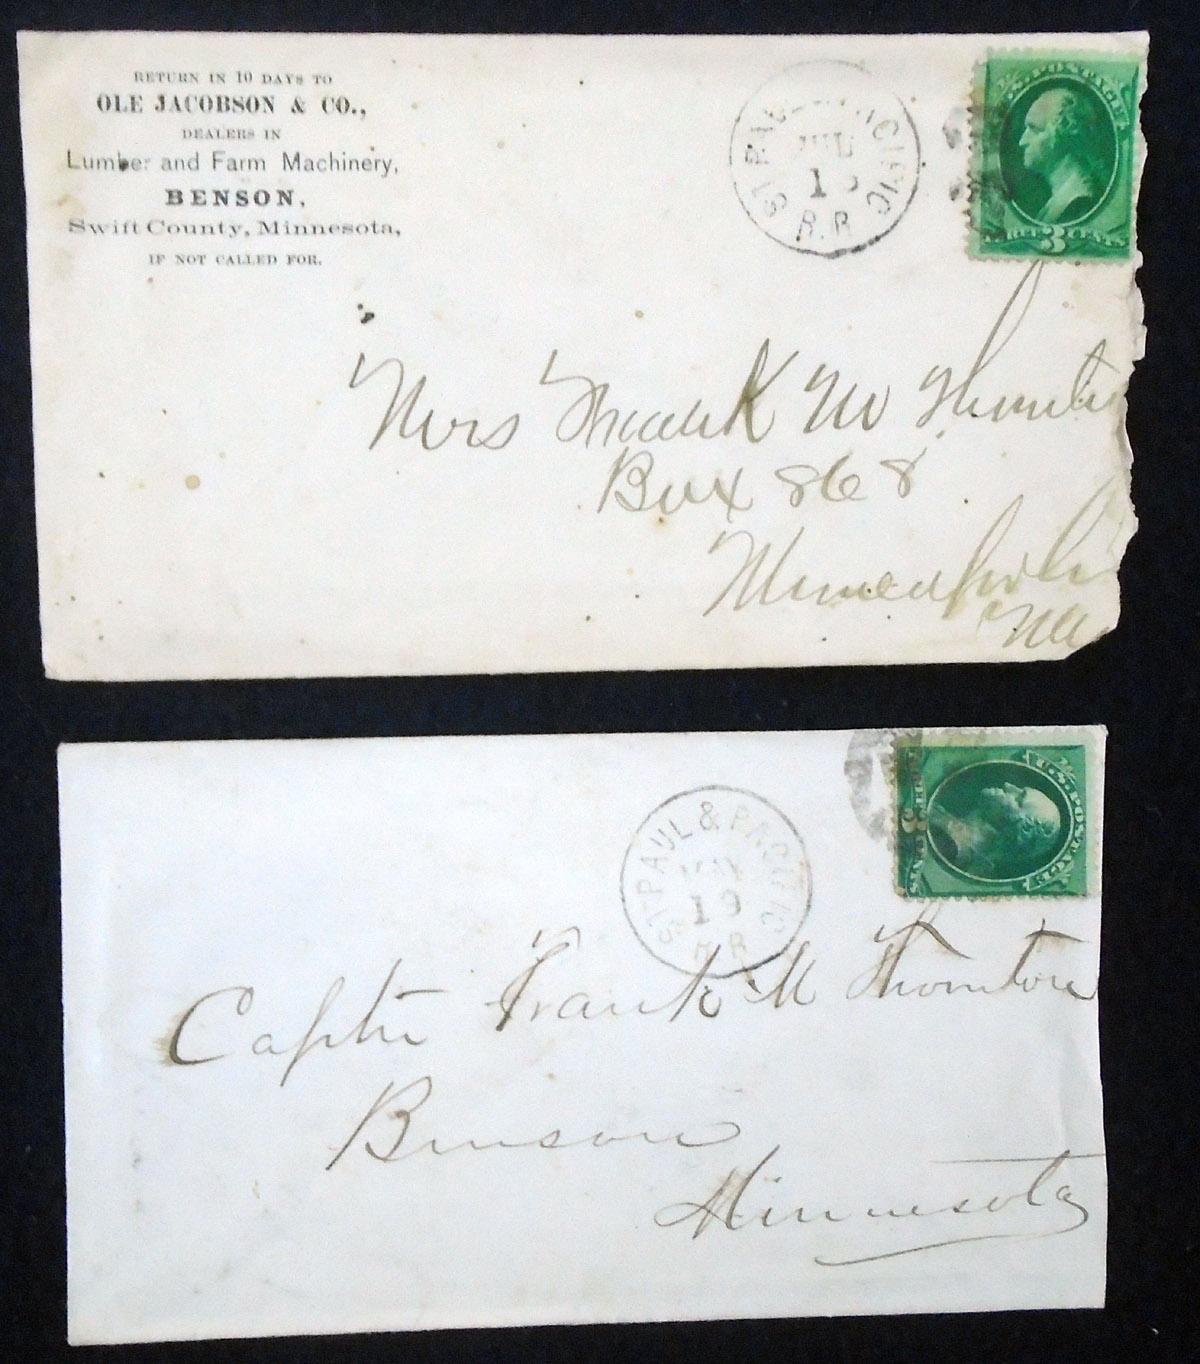 RETURN IN 10 DAYS TO
OLE JACOBSON & CO.,
DEALERS IN
Lumber and Farm Machinery,
BENSON,
Swift County, Minnesota,
IF NOT CALLED FOR.
ST PAUL PACIFIC
JUL
R.R
U.S. POSTAGE
THREE 3 CENTS
Mrs M
Box 868
ST PAUL & PACIFIC
MAY
19
R.R
U.S. POSTAGE
THREE 3 CENTS
Captn Frank M Thornton
Benson
Minnesota